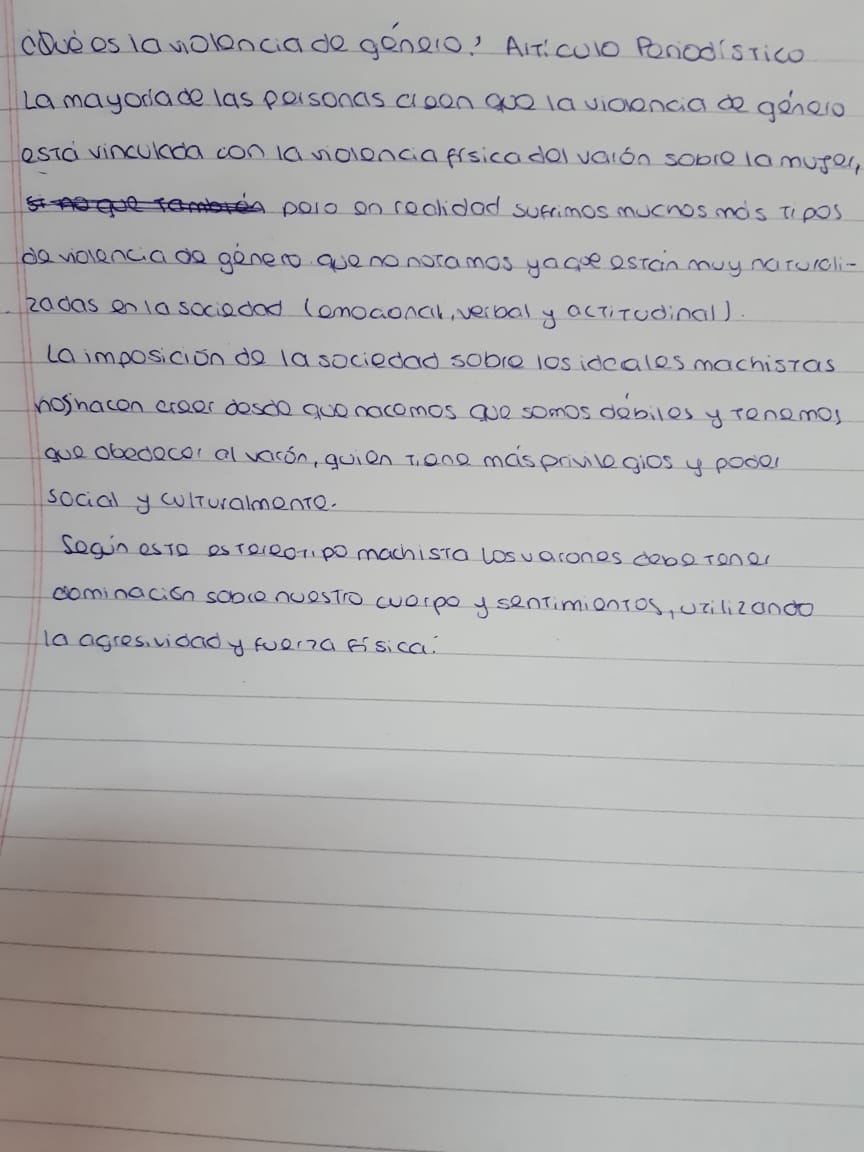 ¿Qué es la violencia de género? Artículo Periodístico
La mayoría de las personas creen que la violencia de género
está vinculada con la violencia física del varón sobre la mujer,
si no que también pero en realidad sufrimos muchos más tipos
de violencia de género que no notamos ya que están muy naturali-
zadas en la sociedad (emocional, verbal y actitudinal).
La imposición de la sociedad sobre los ideales machistas
nos hacen creer desde que nacemos que somos débiles y tenemos
que obedecer al varón, quien tiene más privilegios y poder
social y culturalmente.
Según este estereotipo machista los varones debe tener
dominación sobre nuestro cuerpo y sentimientos, utilizando
la agresividad y fuerza física.